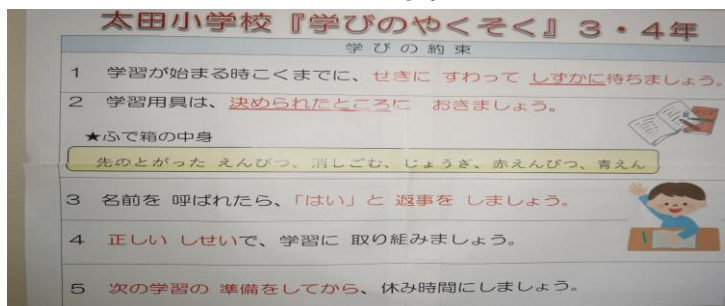 太田小学校『学びのやくそく』３・４年
学びの約束
1 学習が始まる時こくまでに、せきに すわって しずかに待ちましょう。
2 学習用具は、決められたところに おきましょう。
★ふで箱の中身
先のとがった えんぴつ、消しごむ、じょうぎ、赤えんぴつ、青えん
3 名前を 呼ばれたら、「はい」と 返事を しましょう。
4 正しい しせいで、学習に 取り組みましょう。
5 次の学習の 準備をしてから、休み時間にしましょう。